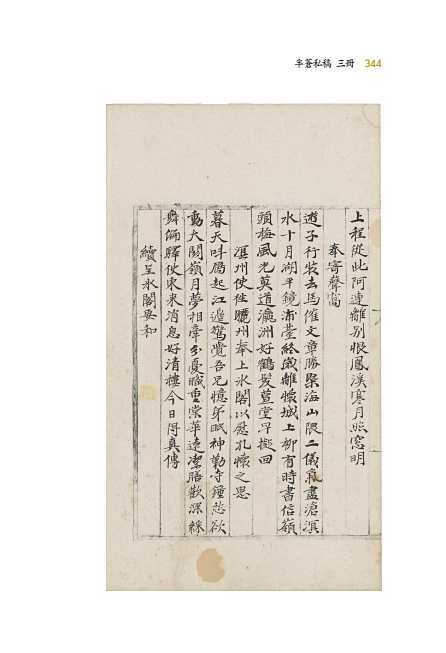 半蒼私稿 三冊 344
上程從此阿連離別恨鳳溪寒月照窓明
奉寄聲窩
遊子行裝去馬催文章勝聚海山隈二儀氣盡滄溟
水十月湖平鏡浦臺終歲離懷城上柳有時書信嶺
頭梅風光莫道瀛洲好鶴髮萱堂早擬回
溟州使往驪州奉上氷閣以慰孔懷之思
暮天呌鴈起江邊驚覺吾兄憶弟眠神勤寺鐘愁欲
動大關嶺月夢相牽分憂職重棠華遠潔膳歡深綵
舞翩驛使東來消息好清樓今日得真傳
續呈氷閣要和